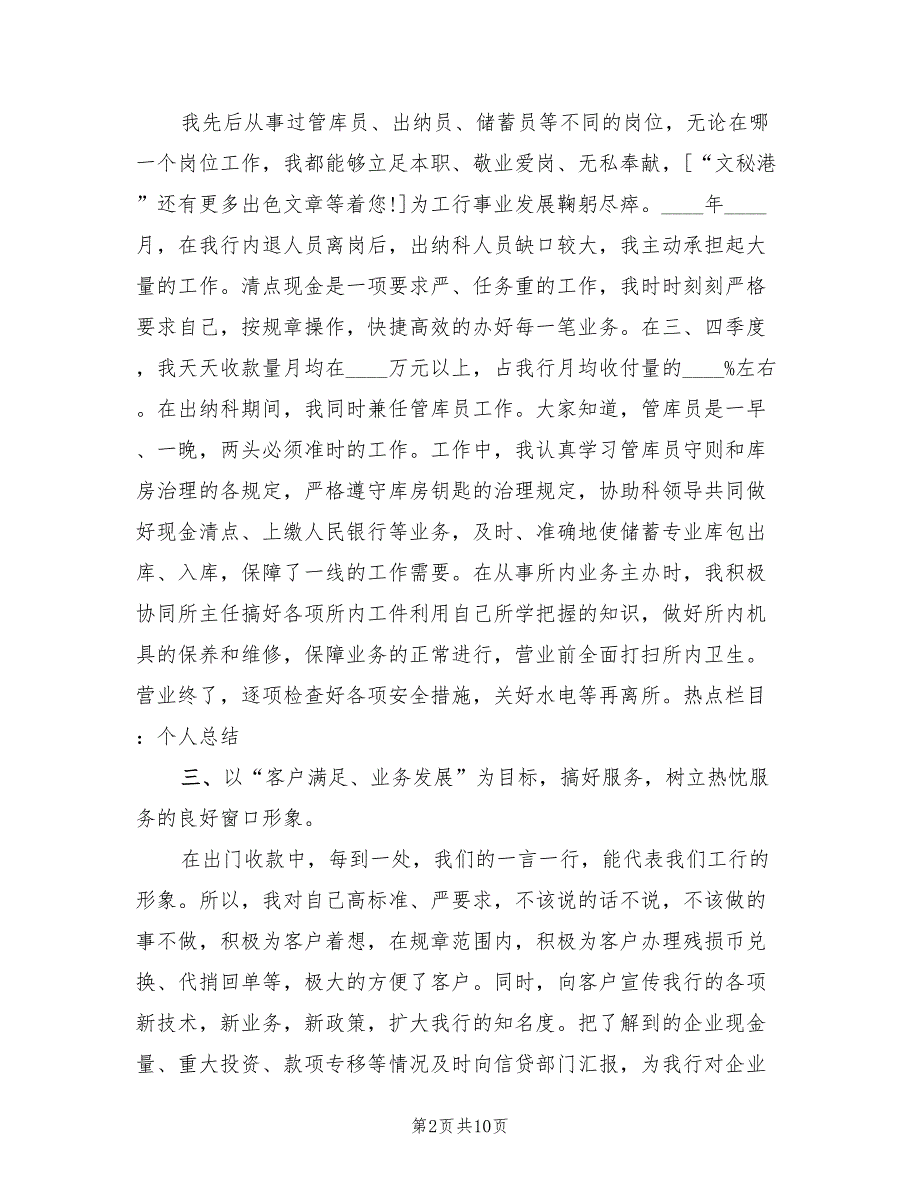 我先后从事过管库员、出纳员、储蓄员等不同的岗位，无论在哪
一个岗位工作，我都能够立足本职、敬业爱岗、无私奉献，[“文秘港
”还有更多出色文章等着您!]为工行事业发展鞠躬尽瘁。____年____
月，在我行内退人员离岗后，出纳科人员缺口较大，我主动承担起大
量的工作。清点现金是一项要求严、任务重的工作，我时时刻刻严格
要求自己，按规章操作，快捷高效的办好每一笔业务。在三、四季度
，我天天收款量月均在____万元以上，占我行月均收付量的____%左右
。在出纳科期间，我同时兼任管库员工作。大家知道，管库员是一早
、一晚，两头必须准时的工作。工作中，我认真学习管库员守则和库
房治理的各规定，严格遵守库房钥匙的治理规定，协助科领导共同做
好现金清点、上缴人民银行等业务，及时、准确地使储蓄专业库包出
库、入库，保障了一线的工作需要。在从事所内业务主办时，我积极
协同所主任搞好各项所内工件利用自己所学把握的知识，做好所内机
具的保养和维修，保障业务的正常进行，营业前全面打扫所内卫生。
营业终了，逐项检查好各项安全措施，关好水电等再离所。热点栏目
：个人总结
三、以“客户满足、业务发展”为目标，搞好服务，树立热忱服
务的良好窗口形象。
在出门收款中，每到一处，我们的一言一行，能代表我们工行的
形象。所以，我对自己高标准、严要求，不该说的话不说，不该做的
事不做，积极为客户着想，在规章范围内，积极为客户办理残损币兑
换、代捎回单等，极大的方便了客户。同时，向客户宣传我行的各项
新技术，新业务，新政策，扩大我行的知名度。把了解到的企业现金
量、重大投资、款项专移等情况及时向信贷部门汇报，为我行对企业
第2页共10页